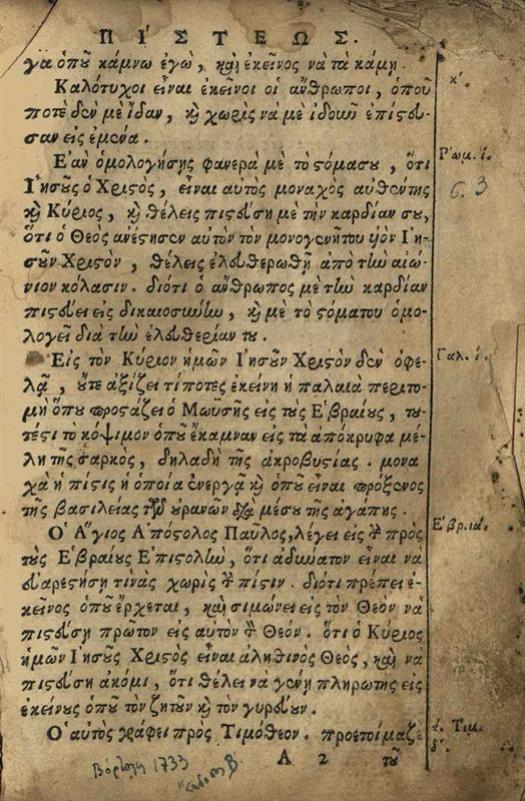 ΠΙΣΤΕΩΣ.
γα ὁποῦ κάμνω ἐγὼ, καὶ ἐκεῖνος νὰ τὰ κάμῃ.
Καλότυχοι εἶναι ἐκεῖνοι οἱ ἄνθρωποι, ὁποῦ
κ΄.
ποτὲ δὲν μὲ ἶδαν, καὶ χωρὶς νὰ μὲ ἰδοῦν ἐπίστευ-
σαν εἰς ἐμένα.
Εʼὰν ὁμολογήσῃς φανερὰ μὲ τὸ στόμα σου, ὅτι
Ρʽωμ. ί.
Ιʼησοῦς ὁ Χριστὸς, εἶναι αὐτὸς μοναχὸς αὐθέντης
6. 3
καὶ Κύριος, καὶ θέλεις πιστεύσῃ μὲ τὴν καρδίαν σου,
ὅτι ὁ Θεὸς ἀνέστησεν αὐτὸν τὸν μονογενῆ του υἱὸν Ιʼη-
σοῦν Χριστὸν, θέλεις ἐλευθερωθῇ ἀπὸ τὴν αἰώ-
νιον κόλασιν. διότι ὁ ἄνθρωπος μὲ τὴν καρδίαν
πιστεύει εἰς δικαιοσύνην, καὶ μὲ τὸ στόμα του ὁμο-
λογεῖ διὰ τὴν ἐλευθερίαν του.
Εἰς τὸν Κύριον ἡμῶν Ιʼησοῦν Χριστὸν δὲν ὀφε-
Γαλ. έ.
λᾷ, οὔτε ἀξίζει τίποτες ἐκείνη ἡ παλαιὰ περιτο-
μὴ ὁποῦ προστάζει ὁ Μωϋσῆς εἰς τοὺς Εʽβραίους, του-
τέστι τὸ κόψιμον ὁποῦ ἔκαμναν εἰς τὰ ἀπόκρυφα μέ-
λη τῆς σαρκὸς, δηλαδὴ τῆς ἀκροβυστίας. μονα
χὰ ἡ πίστις ἡ ὁποία ἐνεργᾷ καὶ ὁποῦ εἶναι πρόξενος
τῆς βασιλείας τῶν οὐρανῶν διὰ μέσου τῆς ἀγάπης.
Οʽ Αʽ́γιος Αʼπόστολος Παῦλος, λέγει εἰς τὴν πρὸς
Εʽβρ. ια΄.
τοὺς Εʽβραίους Εʼπιστολὴν, ὅτι ἀδύνατον εἶναι νὰ
εὐαρεστήσῃ τινὰς χωρὶς τὴν πίστιν. διότι πρέπει ἐ-
κεῖνος ὁποῦ ἔρχεται, καὶ σιμώνει εἰς τὸν Θεὸν νὰ
πιστεύσῃ πρῶτον εἰς αὐτὸν τὸν Θεόν. ὅτι ὁ Κύριος
ἡμῶν Ιʼησοῦς Χριστὸς εἶναι ἀληθινὸς Θεὸς, καὶ νὰ
πιστεύσῃ ἀκόμι, ὅτι θέλει νὰ γένῃ πληρωτὴς εἰς
ἐκείνους ὁποῦ τὸν ζητοῦν καὶ τὸν γυρεύουν.
Οʽ αὐτὸς γράφει πρὸς Τιμόθεον. προετοίμαζε
Τιμ.
δ΄.
Α 2 τοῦ
1733